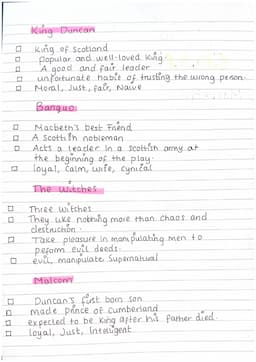 King Duncan
King of Scotland
popular and well-loved King.
A good and fair leader
unfortunate habit of trusting the wrong person.
Moral, Just, fair, Naive
Banquo
Macbeth's best Friend
A Scottish nobleman
Acts a leader in a scottish army at
the beginning of the play.
loyal, Calm, wise, cynical
The Witches
Three witches
They like nothing more than chaos and
destruction.
Take pleasure in manipulating men to
peform evil deeds.
evil, manipulate, Supernatual
Malcom
Duncan's first born son
made prince of Cumberland
expected to be King after his father died.
loyal, Just, Intelligent